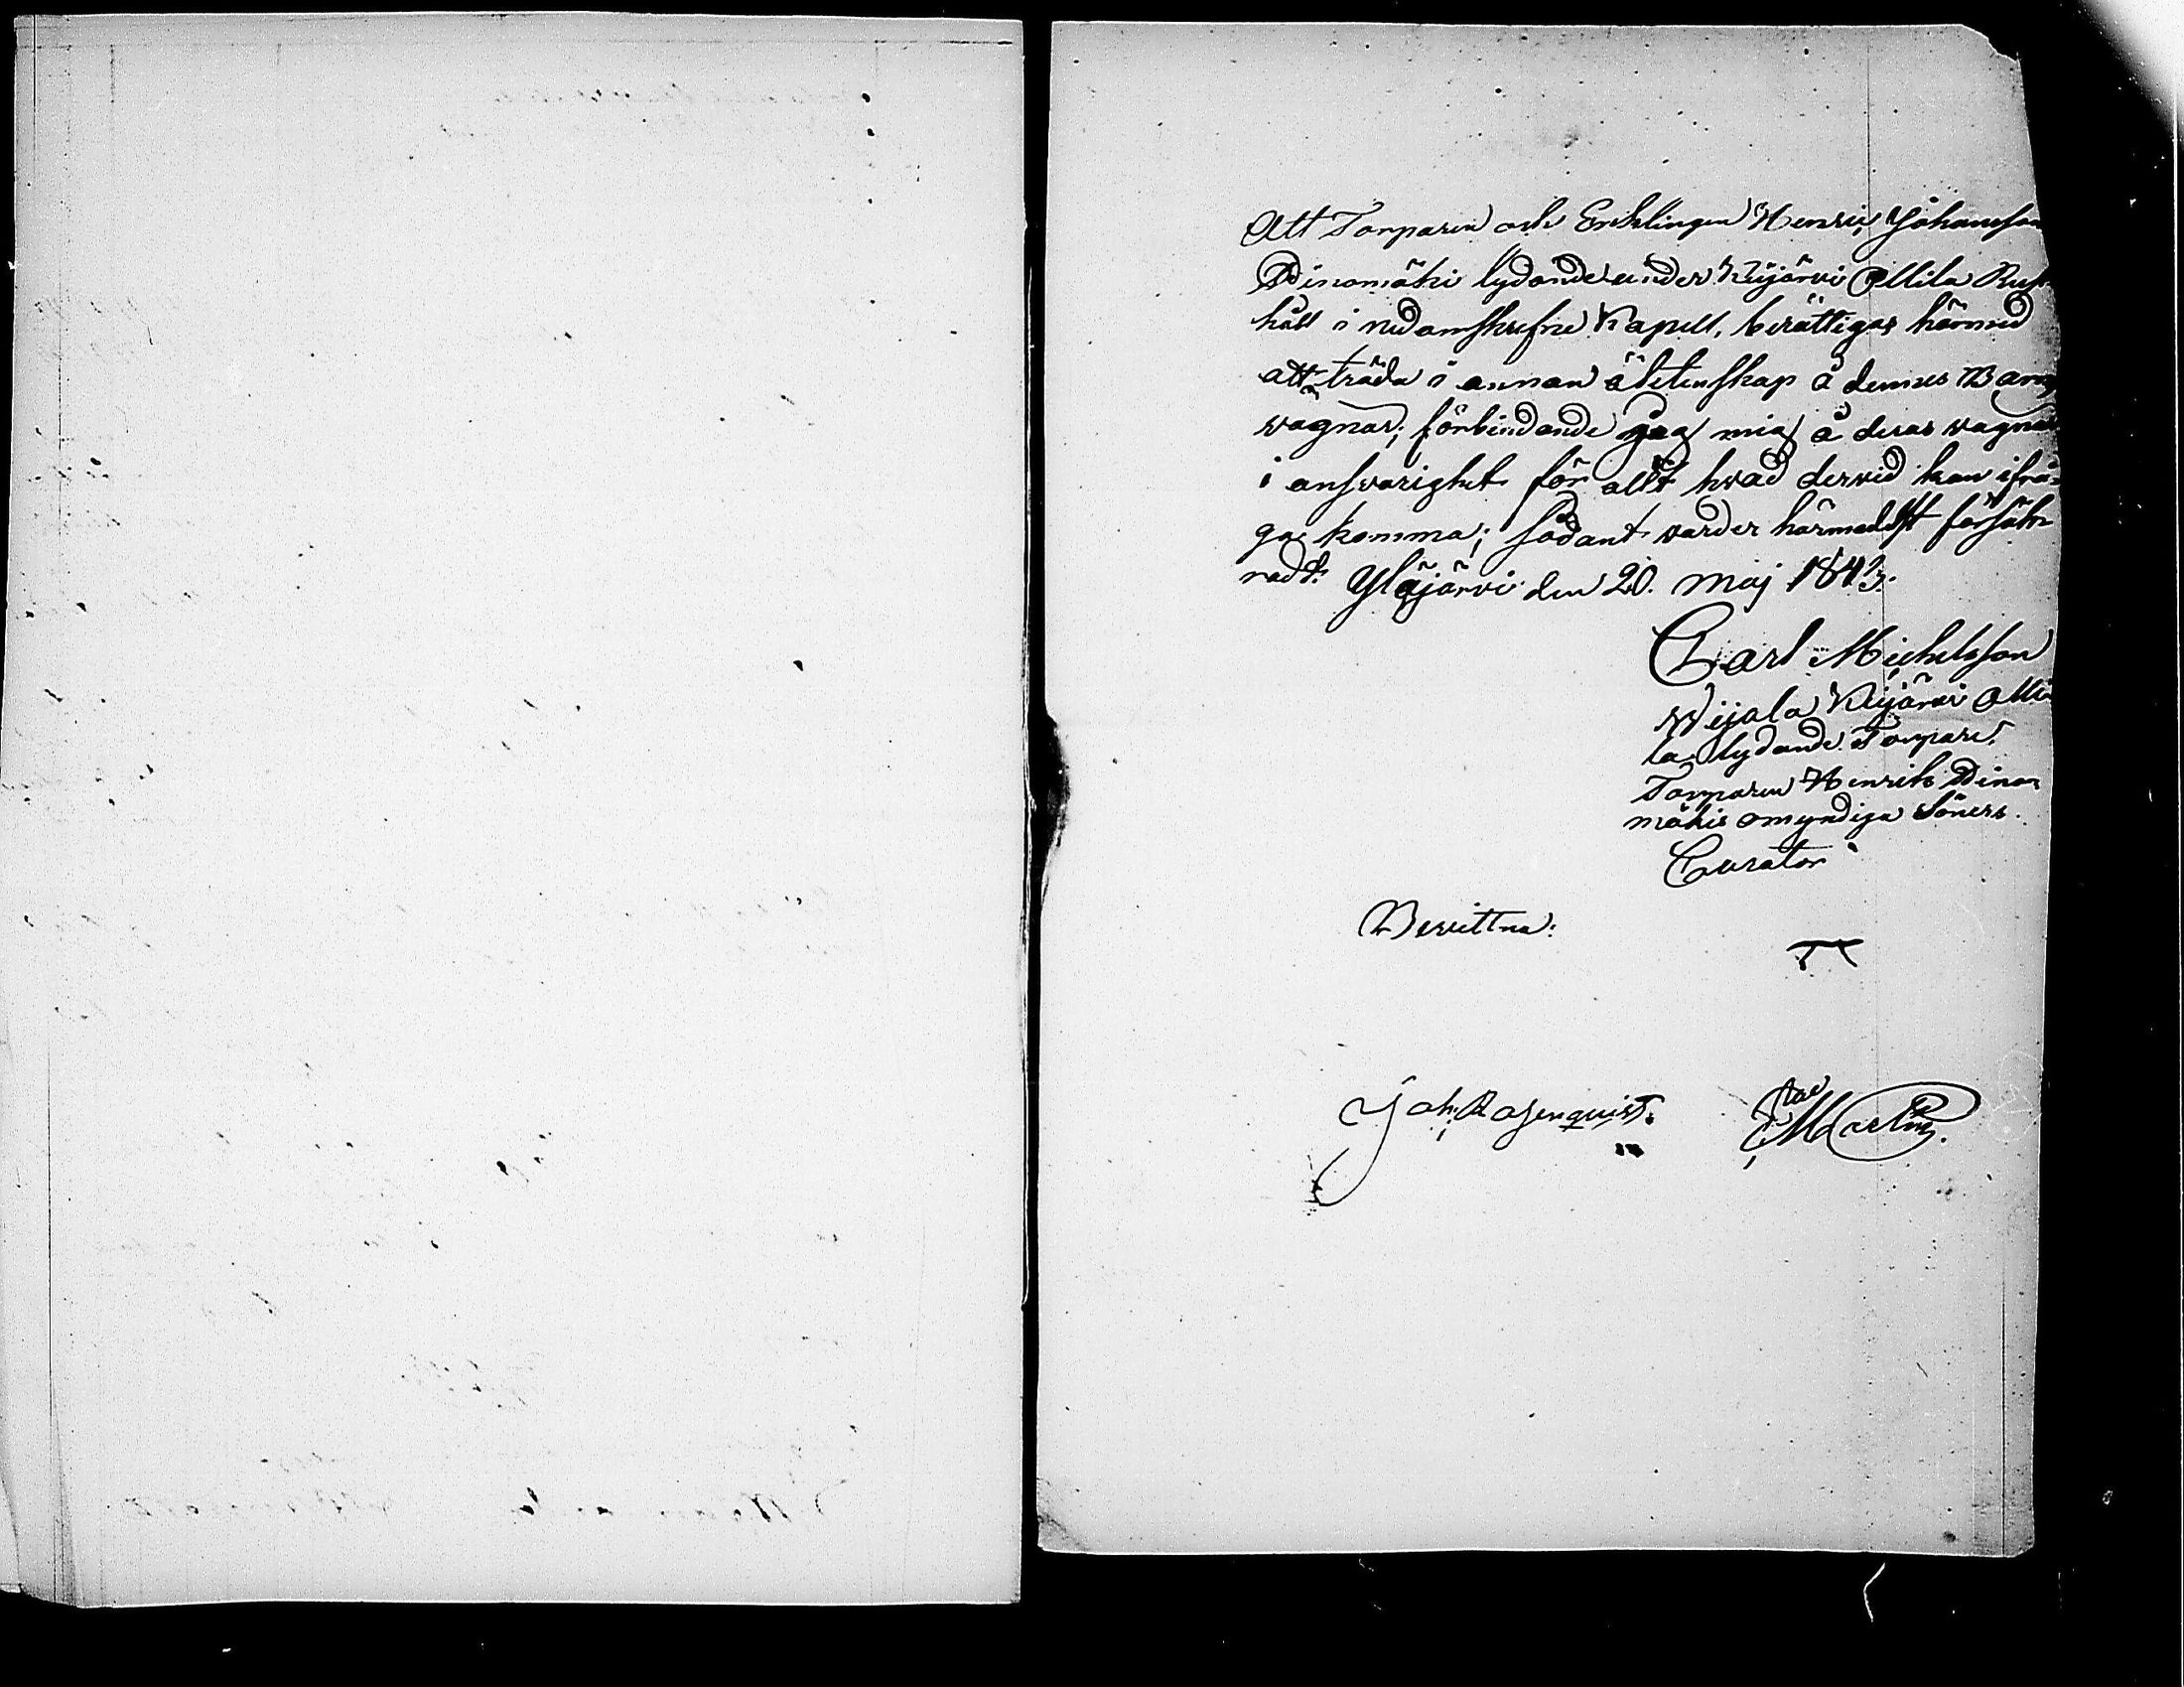 Att Torparen och Enklingen Henric Johansson
Pinomäki lydande under Keijärvi Ollila Rust
håll i nedanskrefne Kapell, berättigas härmed
att träda i annan äktenskap å dennes Barns
wägnar; förbindande jag mig å deras wägnar
i answarighet för allt hvad dervid kan ifrå=
ga komma; sådant warder härmedelst försäk
radt. Ylöjärvi den 20. Maj 1843.
Carl Michelsson
Wijala Keijärvi Olli
la lydande Torpare.
Torparen Henrik Pino=
mäkis omyndiga Söners
Curator
Bewittna:
Joh: Rosenquist.
Martin